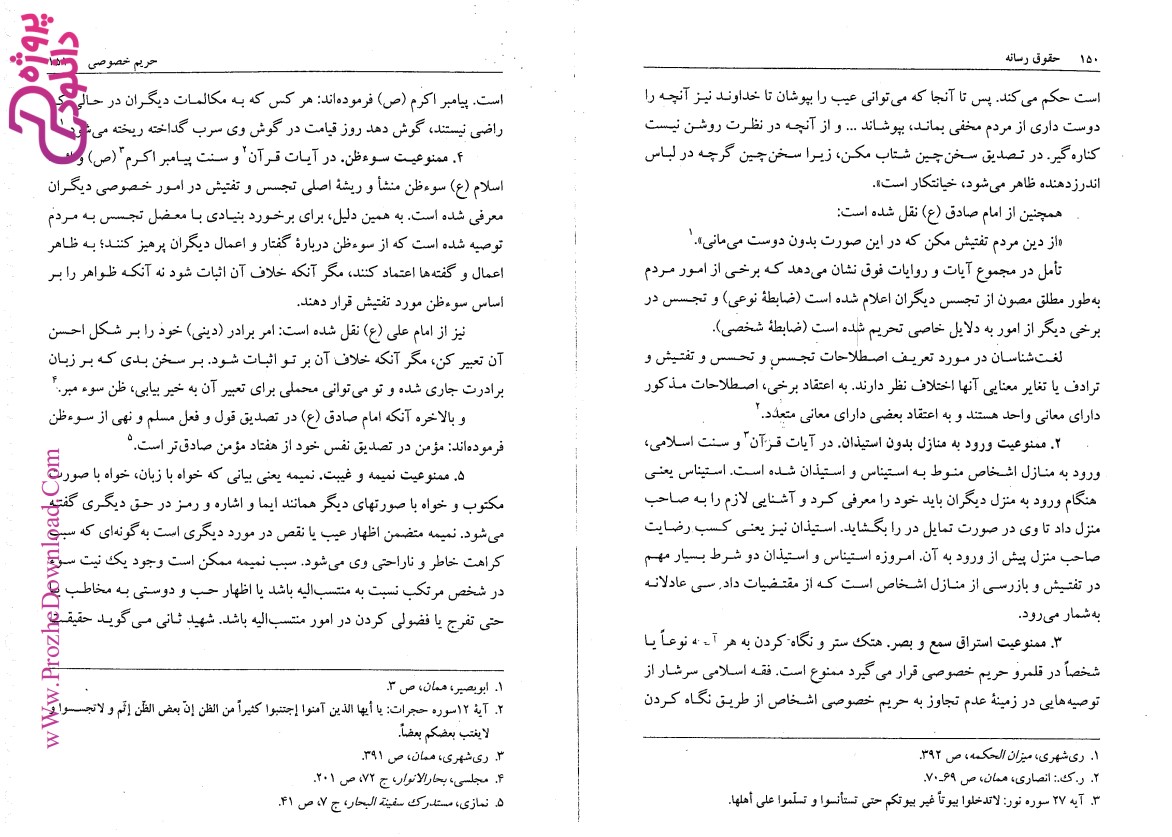 ۱۵۰ حقوق رسانه
است حکم می‌کند. پس تا آنجا که می‌توانی عیب را بپوشان تا خداوند نیز آنچه را
دوست داری از مردم مخفی بماند، بپوشاند ... و از آنچه در نظرت روشن نیست
کناره گیر. در تصدیق سخن‌چین شتاب مکن، زیرا سخن‌چین گرچه در لباس
اندرزدهنده ظاهر می‌شود، خیانتکار است».
همچنین از امام صادق (ع) نقل شده است:
«از دین مردم تفتیش مکن که در این صورت بدون دوست می‌مانی».۱
تأمل در مجموع آیات و روایات فوق نشان می‌دهد که برخی از امور مردم
به‌طور مطلق مصون از تجسس دیگران اعلام شده است (ضابطهٔ نوعی) و تجسس در
برخی دیگر از امور به دلایل خاصی تحریم شده است (ضابطهٔ شخصی).
لغت‌شناسان در مورد تعریف اصطلاحات تجسس و تحسس و تفتیش و
ترادف یا تغایر معنایی آنها اختلاف نظر دارند. به اعتقاد برخی، اصطلاحات مذکور
دارای معانی واحد هستند و به اعتقاد بعضی دارای معانی متعدد.۲
۲. ممنوعیت ورود به منازل بدون استیذان. در آیات قرآن۳ و سنت اسلامی،
ورود به منازل اشخاص منوط به استیناس و استیذان شده است. استیناس یعنی
هنگام ورود به منزل دیگران باید خود را معرفی کرد و آشنایی لازم را به صاحب
منزل داد تا وی در صورت تمایل در را بگشاید. استیذان نیز یعنی کسب رضایت
صاحب منزل پیش از ورود به آن. امروزه استیناس و استیذان دو شرط بسیار مهم
در تفتیش و بازرسی از منازل اشخاص است که از مقتضیات عادلانه
به‌شمار می‌رود.
۳. ممنوعیت استراق سمع و بصر. هتک ستر و نگاه کردن به هر نوعاً یا
شخصاً در قلمرو حریم خصوصی قرار می‌گیرد ممنوع است. فقه اسلامی سرشار از
توصیه‌هایی در زمینهٔ عدم تجاوز به حریم خصوصی اشخاص از طریق نگاه کردن
۱. ری‌شهری، میزان الحکمه، ص ۳۹۲.
۲. ر.ک.: انصاری، همان، ص ۶۹-۷۰.
۳. آیه ۲۷ سوره نور: لاتدخلوا بیوتاً غیر بیوتکم حتی تستأنسوا و تسلّموا علی أهلها.
حریم خصوصی
است. پیامبر اکرم (ص) فرموده‌اند: هر کس که به مکالمات دیگران در حالی
راضی نیستند، گوش دهد روز قیامت در گوش وی سرب گداخته ریخته می‌شود.۱
۴. ممنوعیت سوءظن. در آیات قرآن۲ و سنت پیامبر اکرم۳ (ص) و
اسلام (ع) سوءظن منشأ و ریشهٔ اصلی تجسس و تفتیش در امور خصوصی دیگران
معرفی شده است. به همین دلیل، برای برخورد بنیادی با معضل تجسس به مردم
توصیه شده است که از سوءظن دربارهٔ گفتار و اعمال دیگران پرهیز کنند؛ به ظاهر
اعمال و گفته‌ها اعتماد کنند، مگر آنکه خلاف آن اثبات شود نه آنکه ظواهر را بر
اساس سوءظن مورد تفتیش قرار دهند.
نیز از امام علی (ع) نقل شده است: امر برادر (دینی) خود را بر شکل احسن
آن تعبیر کن، مگر آنکه خلاف آن بر تو اثبات شود. بر سخن بدی که بر زبان
برادرت جاری شده و تو می‌توانی محملی برای تعبیر آن به خیر بیابی، ظن سوء مبر.۴
و بالاخره آنکه امام صادق (ع) در تصدیق قول و فعل مسلم و نهی از سوءظن
فرموده‌اند: مؤمن در تصدیق نفس خود از هفتاد مؤمن صادق‌تر است.۵
۵. ممنوعیت نمیمه و غیبت. نمیمه یعنی بیانی که خواه با زبان، خواه با صورت
مکتوب و خواه با صورتهای دیگر همانند ایما و اشاره و رمز در حق دیگری گفته
می‌شود. نمیمه متضمن اظهار عیب یا نقص در مورد دیگری است به‌گونه‌ای که سبب
کراهت خاطر و ناراحتی وی می‌شود. سبب نمیمه ممکن است وجود یک نیت سوء
در شخص مرتکب نسبت به منتسب‌الیه باشد یا اظهار حب و دوستی به مخاطب یا
حتی تفرج یا فضولی کردن در امور منتسب‌الیه باشد. شهید ثانی می‌گوید حقیقت
۱. ابوبصیر، همان، ص ۳.
۲. آیهٔ ۱۲سوره حجرات: یا أیها الذین آمنوا إجتنبوا کثیراً من الظن إنّ بعض الظّن إثم و لاتجسسوا و
لایغتب بعضکم بعضاً.
۳. ری‌شهری، همان، ص ۳۹۱.
۴. مجلسی، بحارالانوار، ج ۷۲، ص ۲۰۱.
۵. نمازی، مستدرک سفینة البحار، ج ۷، ص ۴۱.
پروژه
دانلود
wWw.ProzheDownload.Com